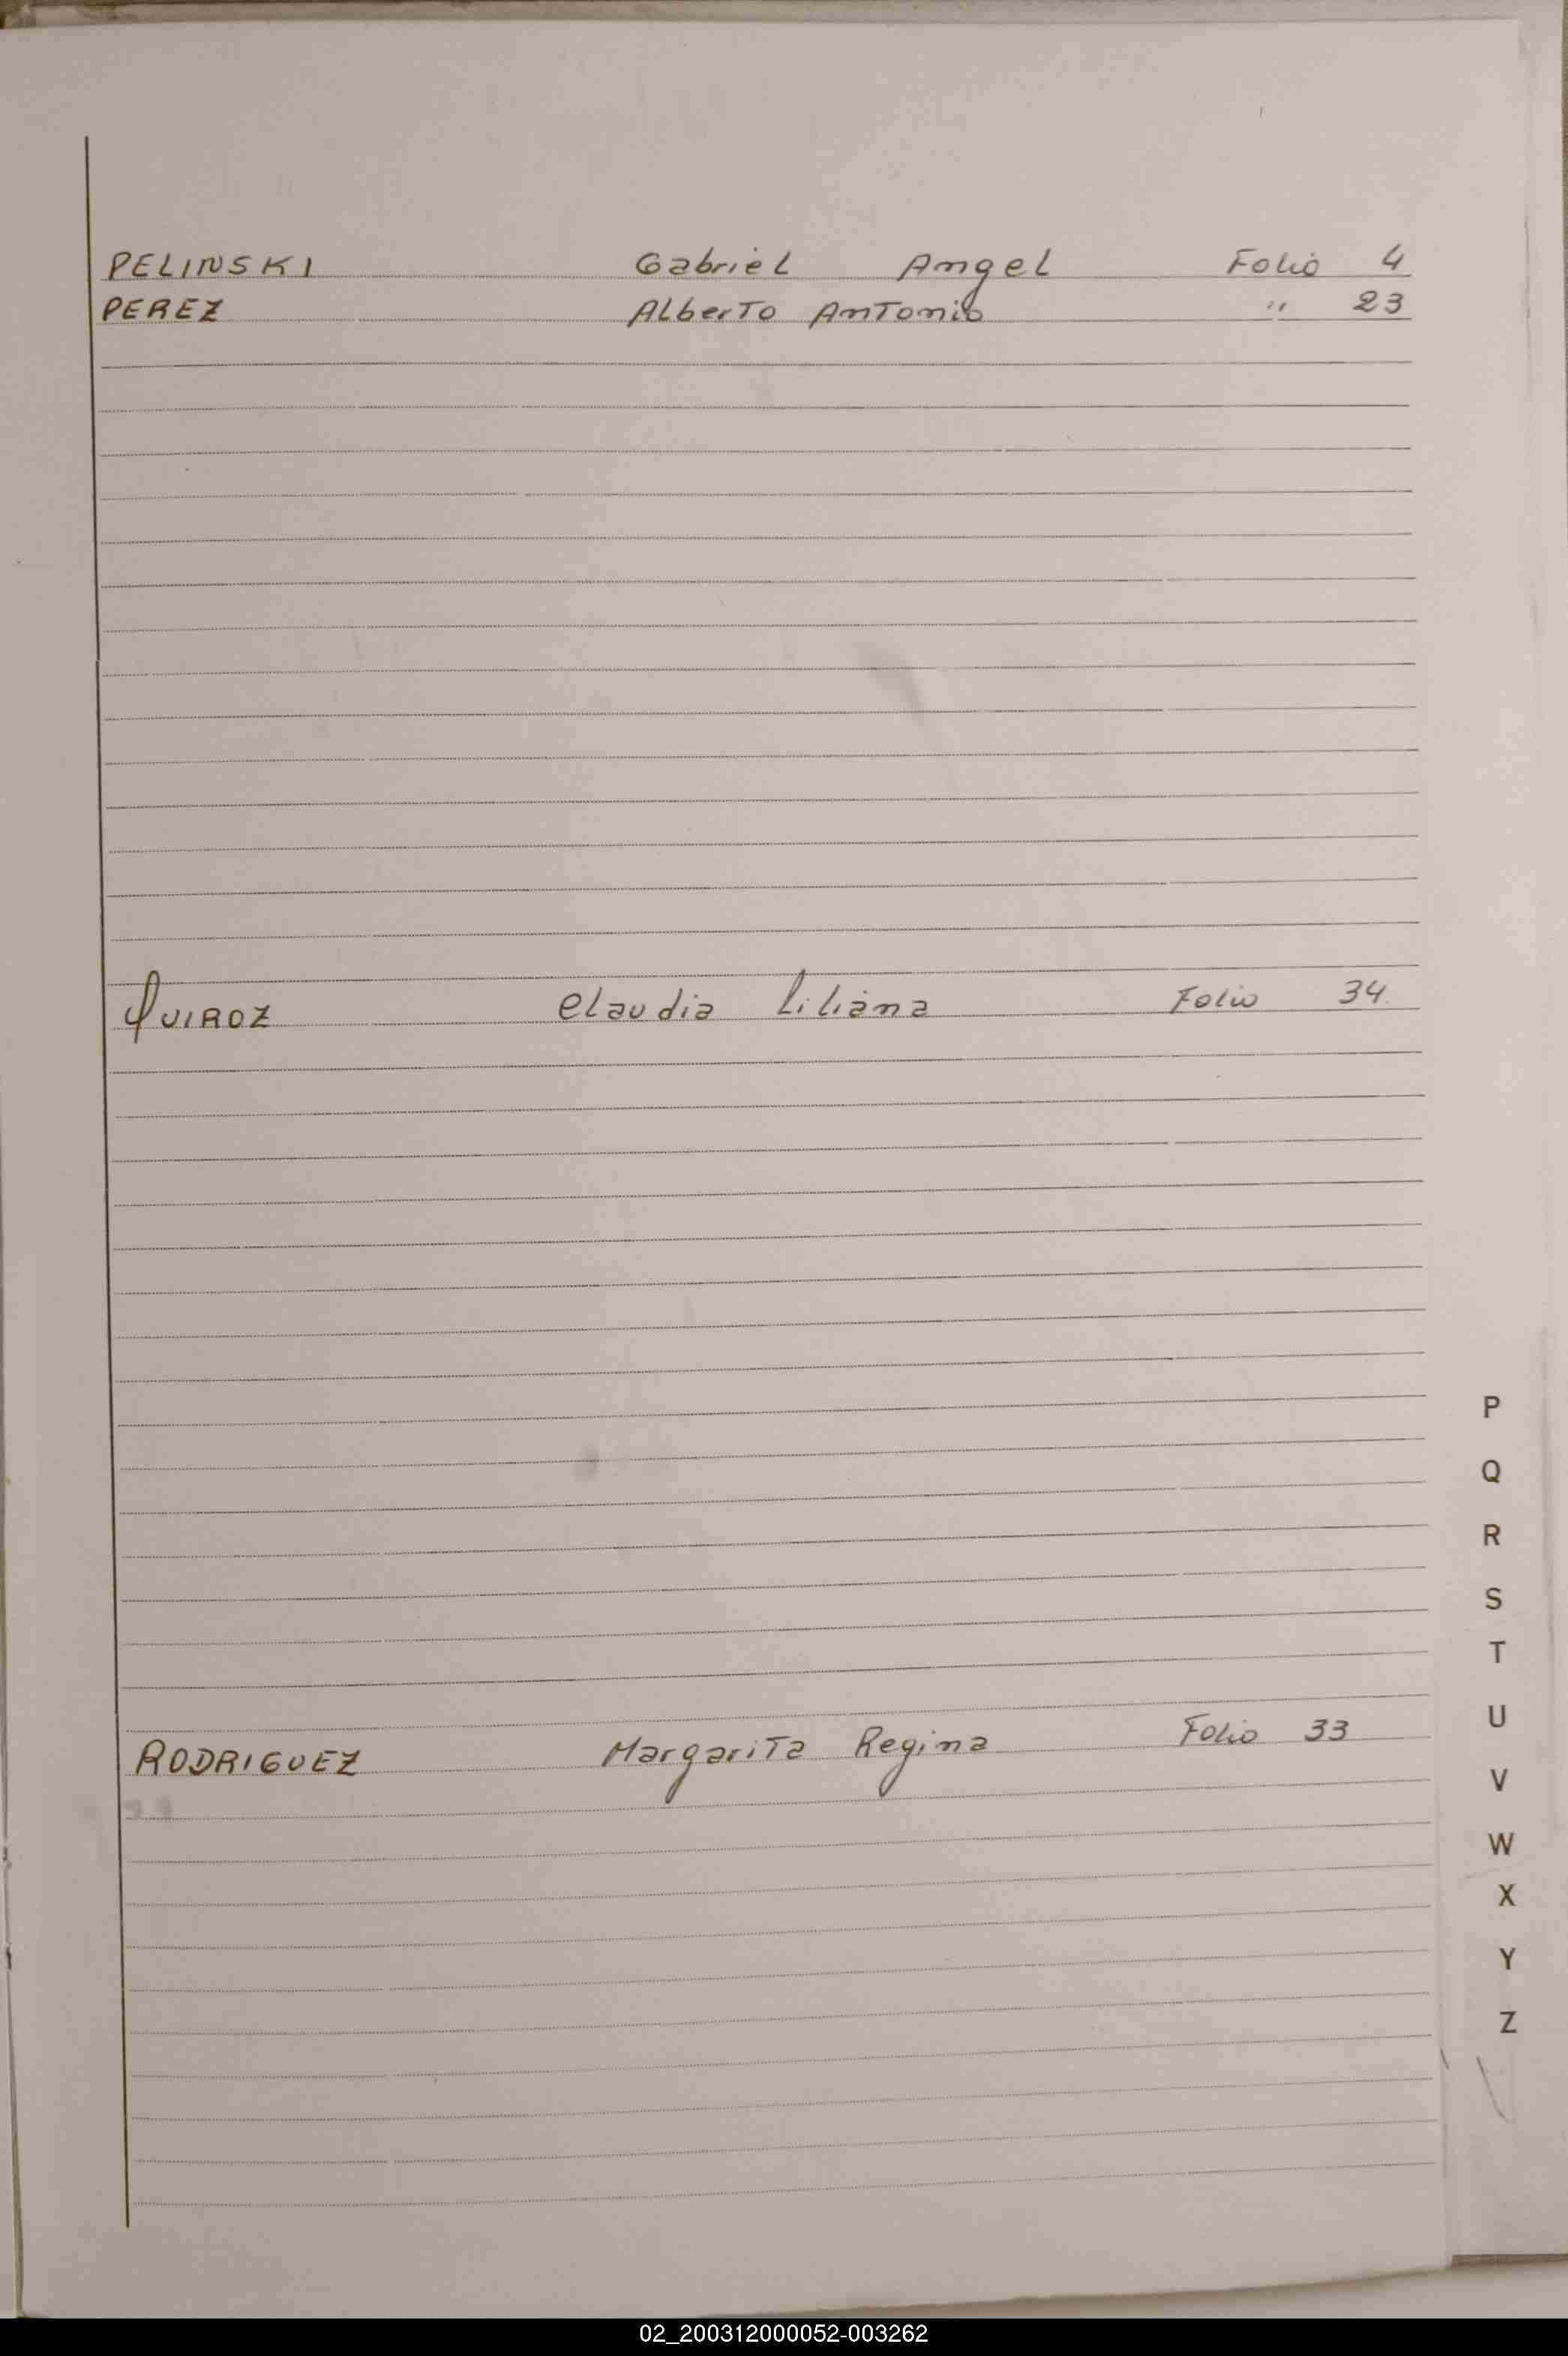 PELINSKI Gabriel Angel Folio 4
PEREZ Alberto Antonio " 23
QUIROZ Claudia Liliana Folio 34
P
Q
R
S
T
RODRIGUEZ Margarita Regina Folio 33
U
V
W
X
Y
Z
02_200312000052-003262